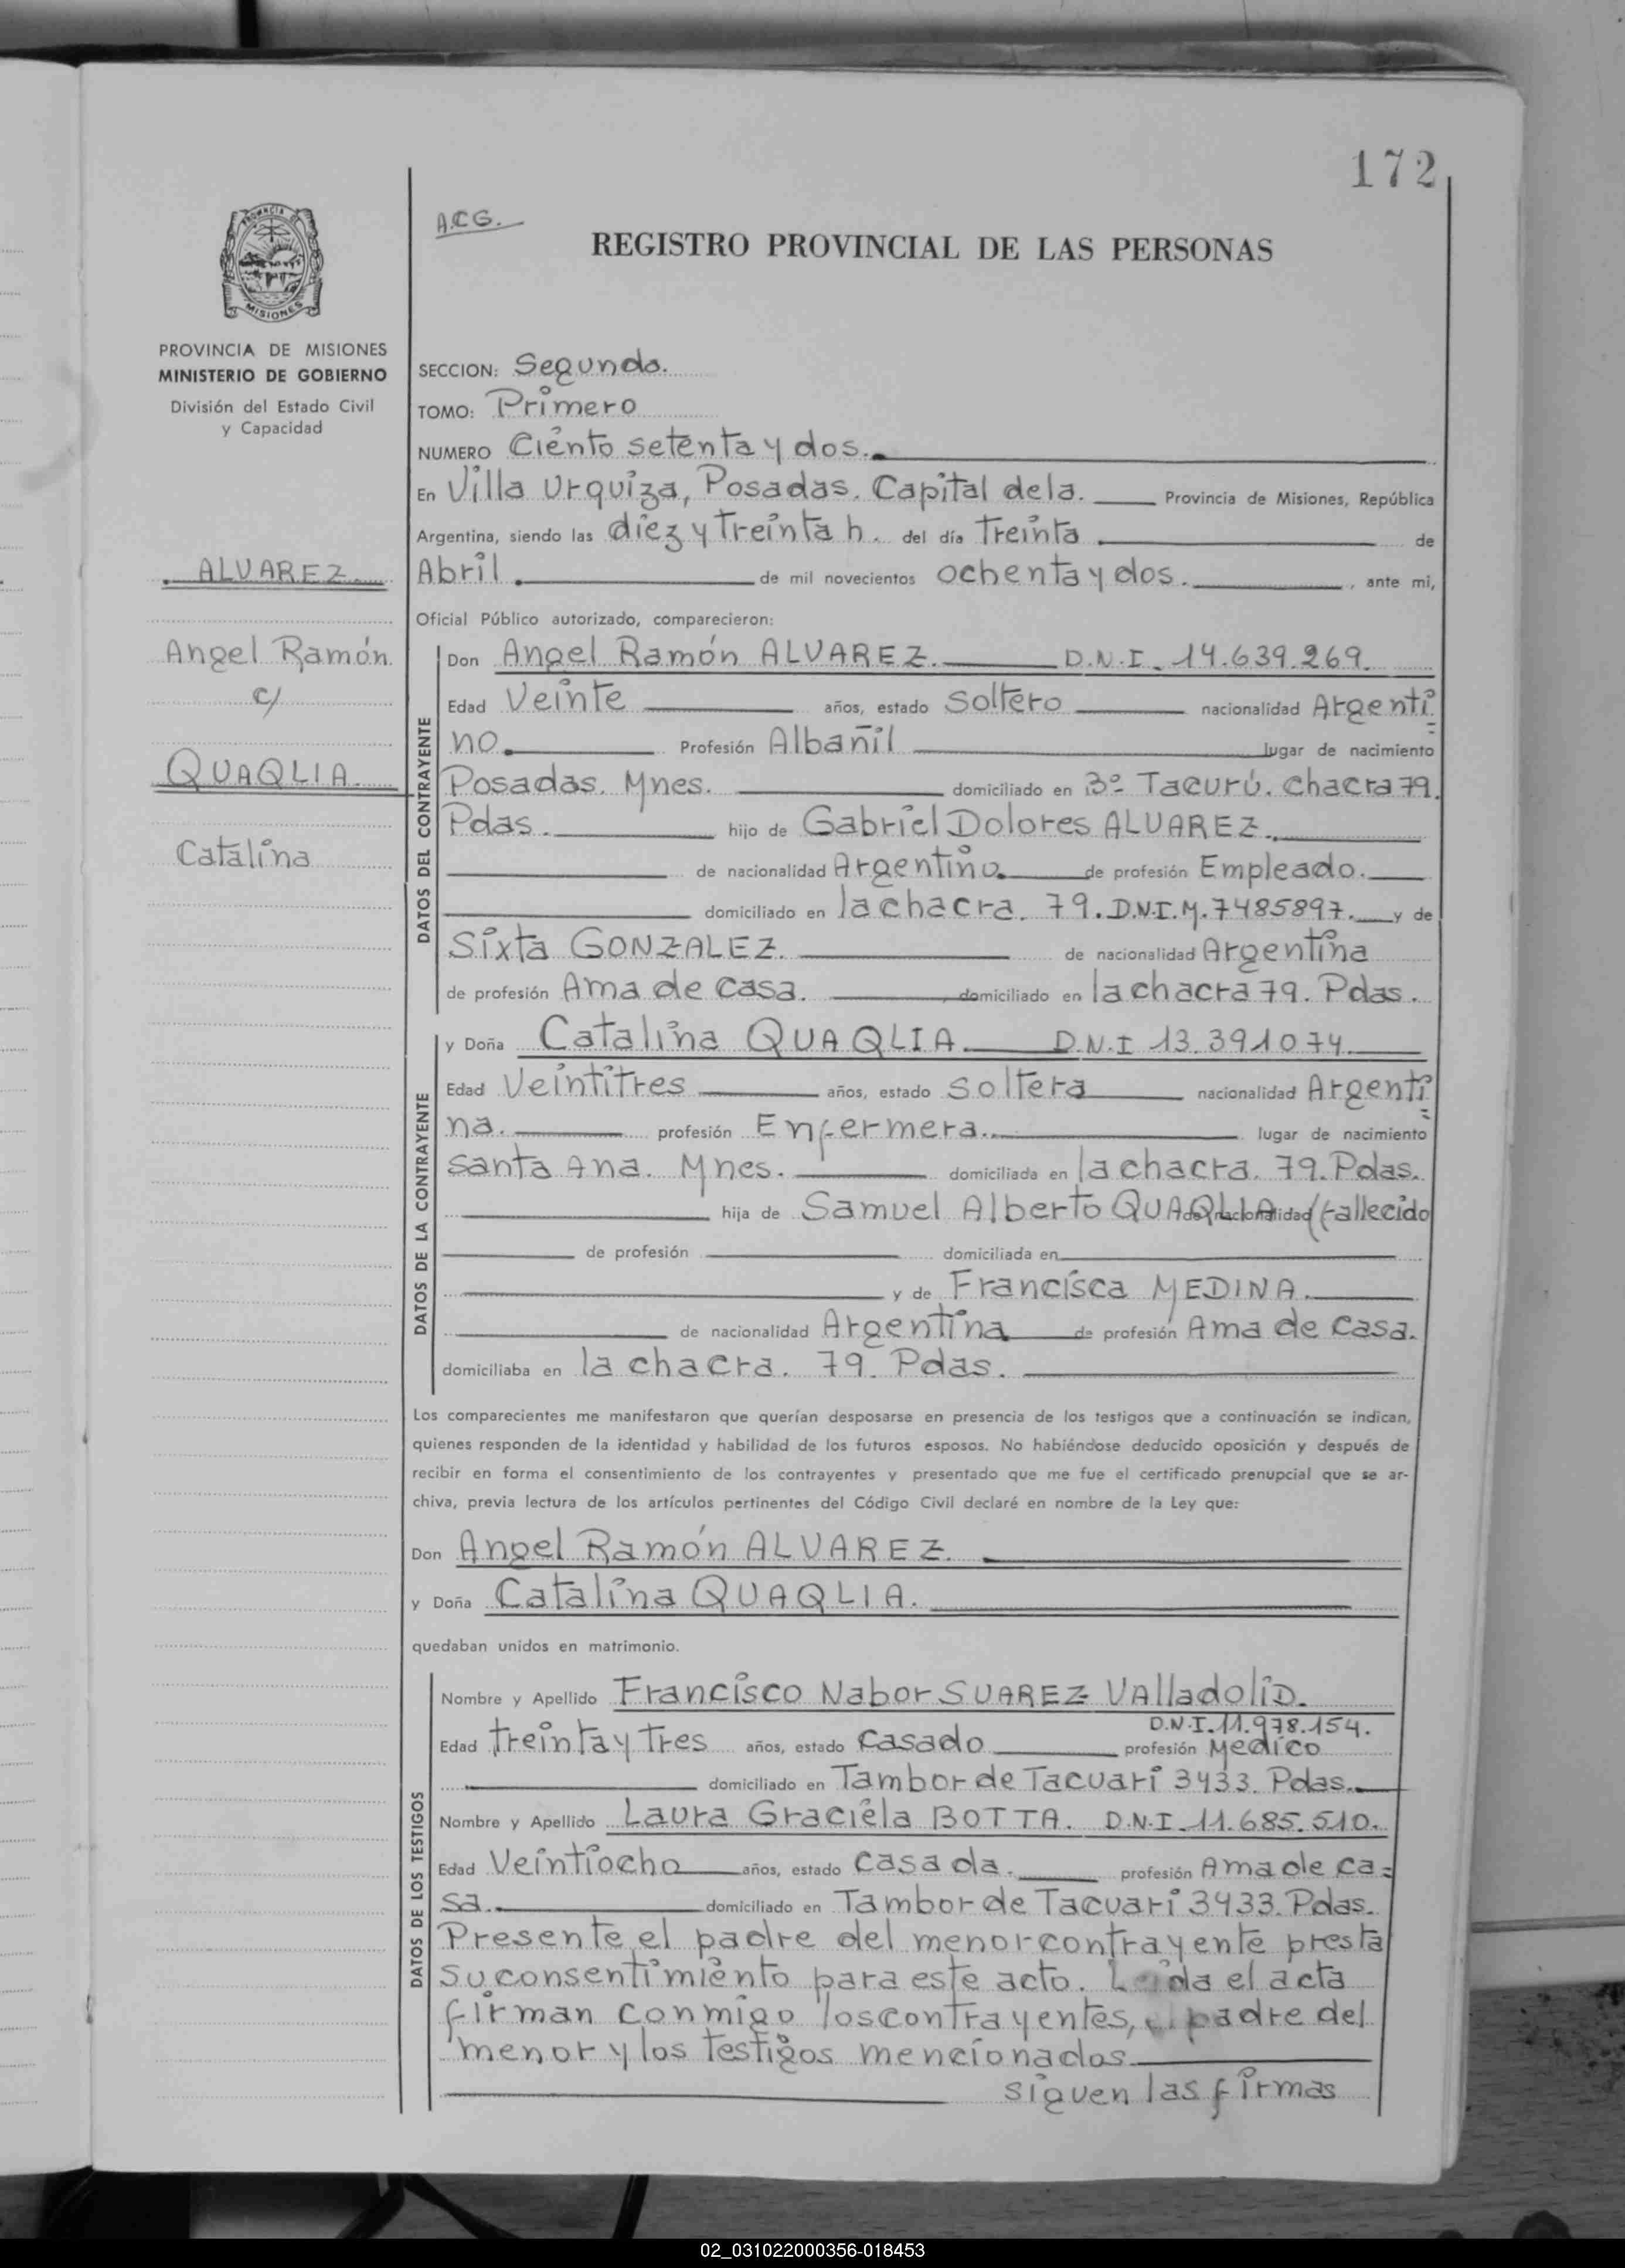 172
A.C.G.
REGISTRO PROVINCIAL DE LAS PERSONAS
PROVINCIA DE MISIONES
MINISTERIO DE GOBIERNO
División del Estado Civil
y Capacidad
SECCION: Segunda.
TOMO: Primero
NUMERO Ciento setenta y dos.
En Villa Urquiza, Posadas. Capital de la. Provincia de Misiones, República
Argentina, siendo las diez y treinta h. del día treinta de
Abril de mil novecientos ochenta y dos. , ante mi,
Oficial Público autorizado, comparecieron:
ALVAREZ
Angel Ramón
c/
QUAQLIA
Catalina
DATOS DEL CONTRAYENTE
Don Angel Ramón ALVAREZ. D.N.I. 14.639.269.
Edad Veinte años, estado soltero nacionalidad Argenti
no. Profesión Albañil lugar de nacimiento
Posadas. Mnes. domiciliado en Bº Tacurú. Chacra 79.
Pdas. hijo de Gabriel Dolores ALVAREZ.
de nacionalidad Argentino. de profesión Empleado.
domiciliado en la chacra. 79. D.N.I.M. 7485897. y de
Sixta GONZALEZ. de nacionalidad Argentina
de profesión Ama de casa. domiciliado en la chacra 79. Pdas.
DATOS DE LA CONTRAYENTE
y Doña Catalina QUAQLIA. D.N.I 13.391074.
Edad Veintitres años, estado soltera nacionalidad Argenti
na. profesión Enfermera. lugar de nacimiento
santa Ana. Mnes. domiciliada en la chacra. 79. Pdas.
hija de Samuel Alberto QUAQLIA de nacionalidad (fallecido
de profesión domiciliada en
y de Francisca MEDINA.
de nacionalidad Argentina de profesión Ama de casa.
domiciliaba en la chacra. 79. Pdas.
Los comparecientes me manifestaron que querían desposarse en presencia de los testigos que a continuación se indican,
quienes responden de la identidad y habilidad de los futuros esposos. No habiéndose deducido oposición y después de
recibir en forma el consentimiento de los contrayentes y presentado que me fue el certificado prenupcial que se ar-
chiva, previa lectura de los artículos pertinentes del Código Civil declaré en nombre de la Ley que:
Don Angel Ramón ALVAREZ.
y Doña Catalina QUAQLIA.
quedaban unidos en matrimonio.
DATOS DE LOS TESTIGOS
Nombre y Apellido Francisco Nabor SUAREZ VAlladoliD.
D.N.I. 11.978.154.
Edad treinta y tres años, estado casado profesión Medico
domiciliado en Tambor de Tacuari 3433. Pdas.
Nombre y Apellido Laura Graciela BOTTA. D.N.I. 11.685.510.
Edad Veintiocho años, estado casada. profesión Ama de ca=
sa. domiciliado en Tambor de Tacuari 3433. Pdas.
Presente el padre del menor contrayente presta
su consentimiento para este acto. Leida el acta
firman conmigo los contrayentes, el padre del
menor y los testigos mencionados.
siguen las firmas
02_031022000356-018453